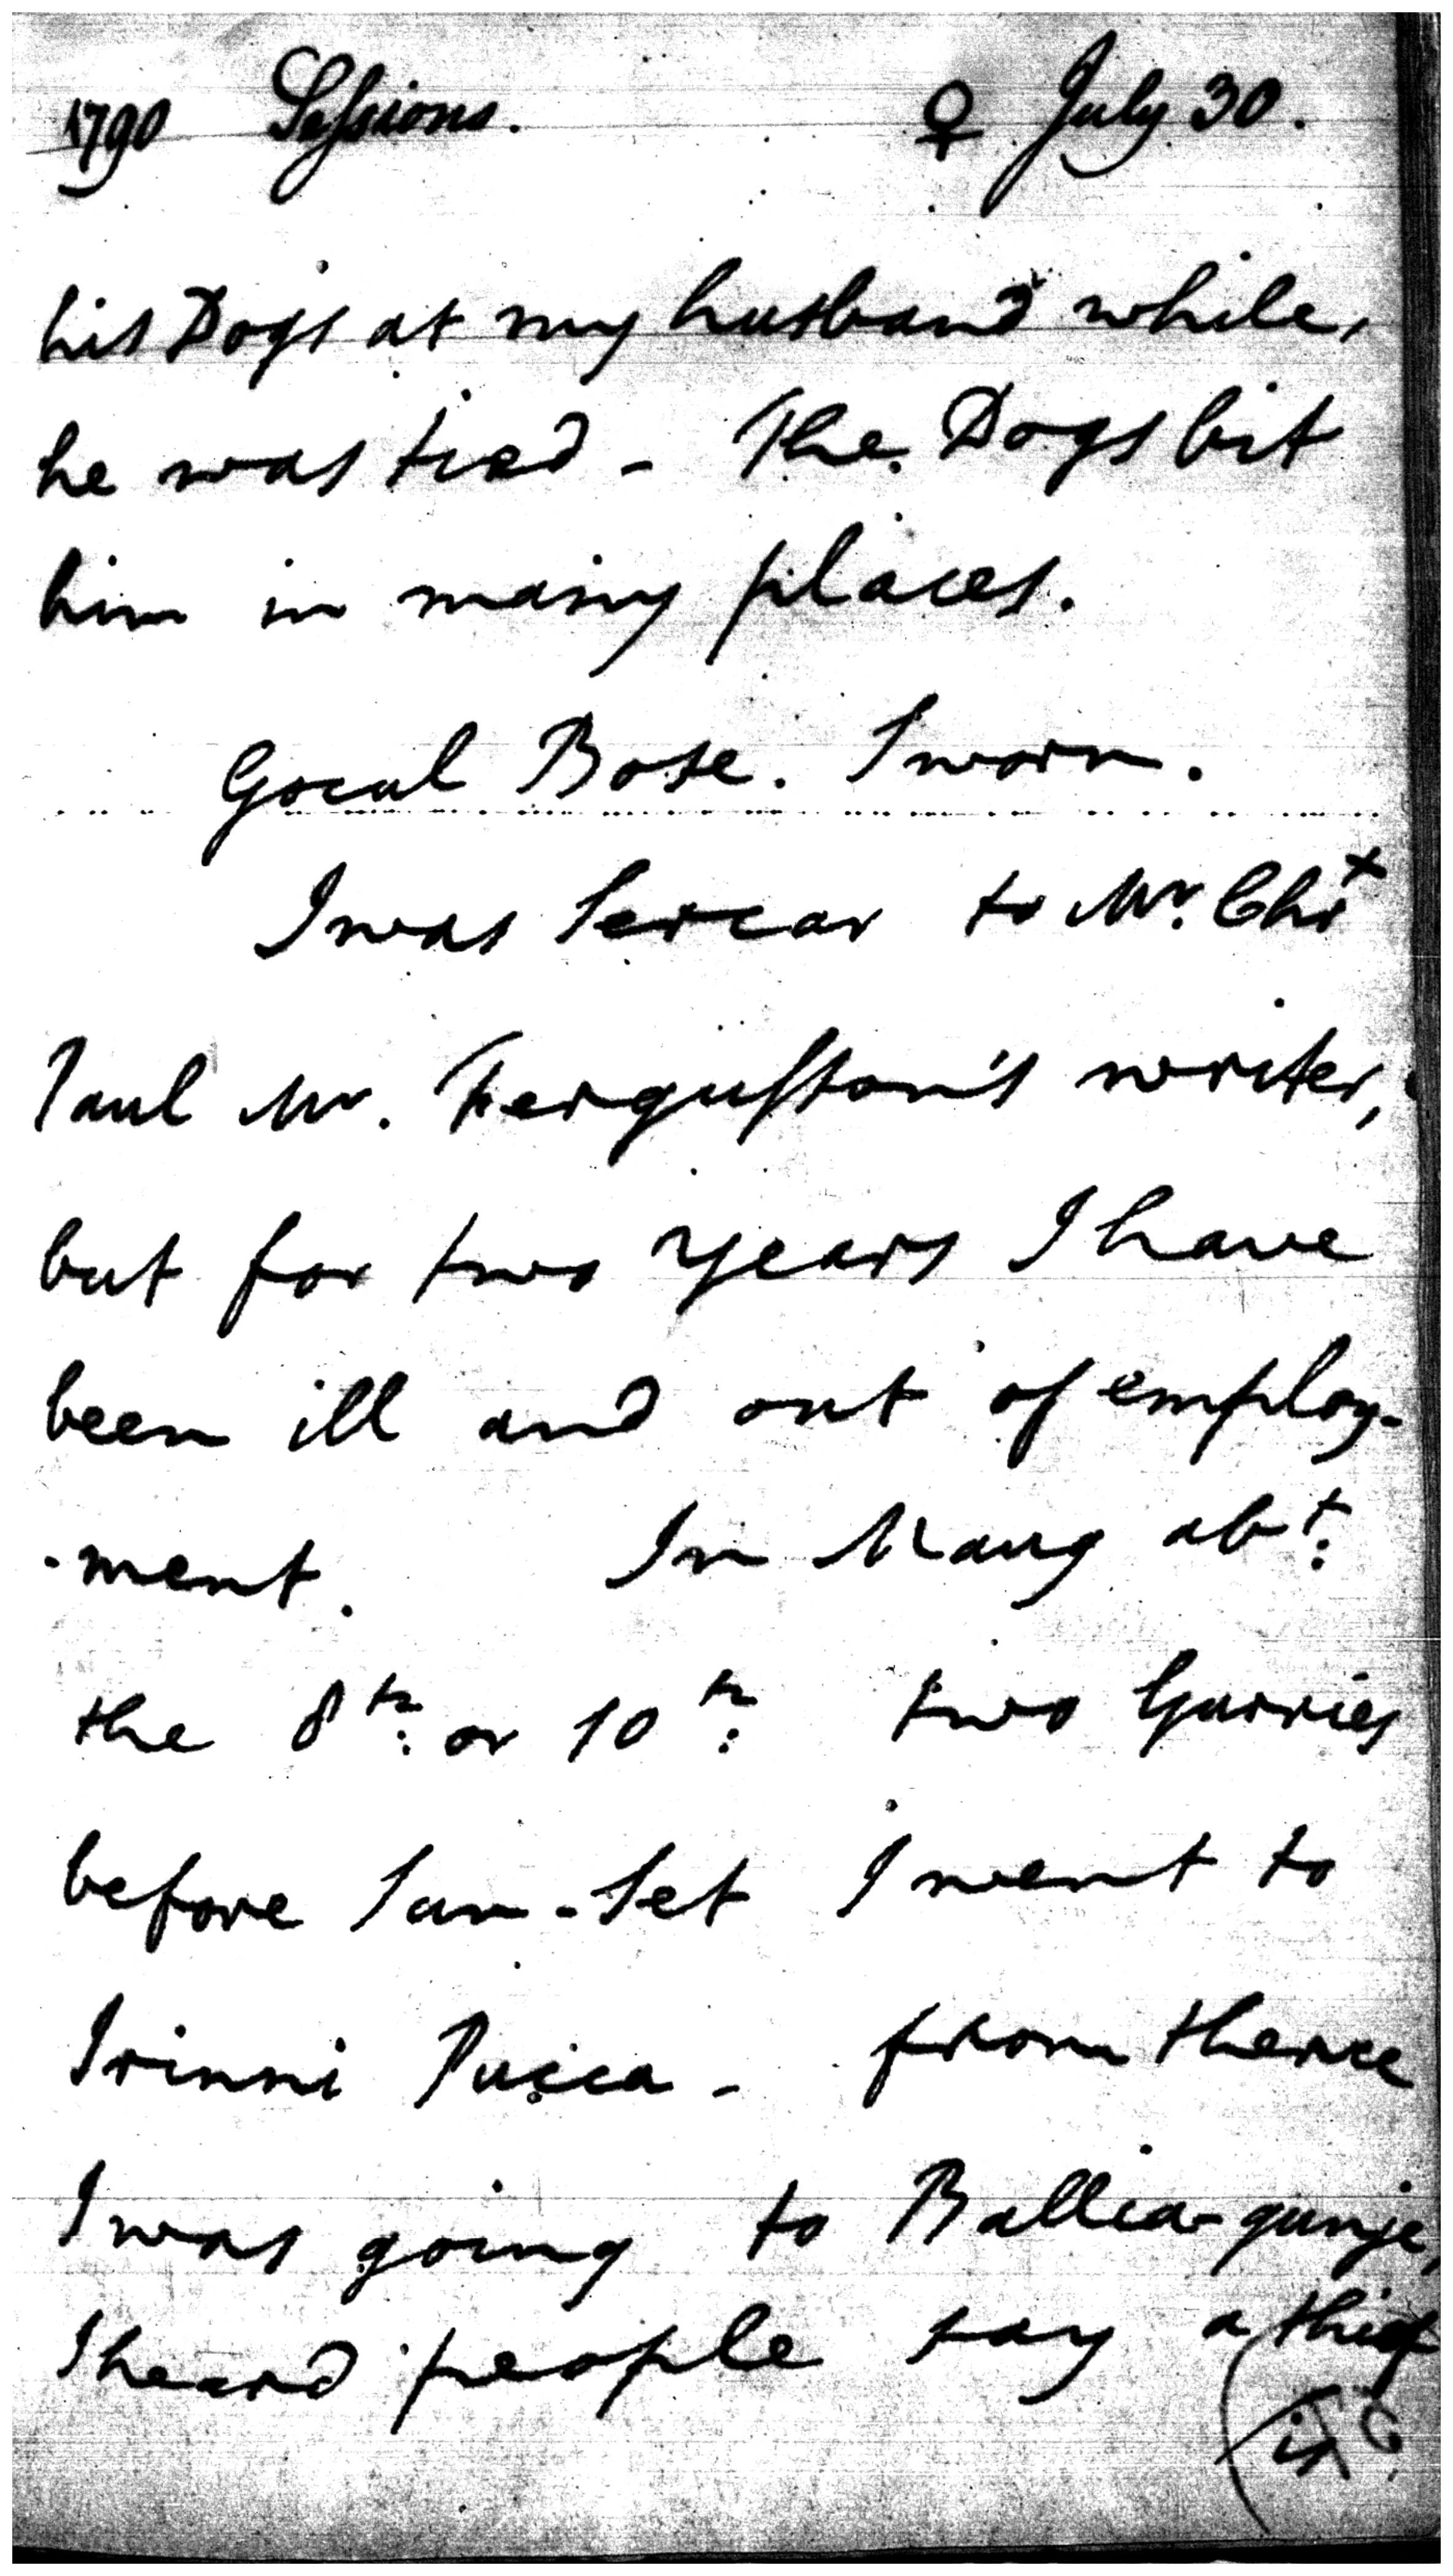 1790 Sessions. ♀ July 30.
his Dogs at my husband while,
he was tied - The Dogs bit
him in many places.
Gocul Bose. Sworn.
I was Sercar to Mr. Chr
Paul Mr. Fergusson's writer,
but for two years I have
been ill and out of employ-
-ment. In Maug abt:
the 8th: or 10th: two Gurries
before Sun-Set I went to
Srinni Pucca - from thence
I was going to Ballea-gunje,
I heard people say a thief
is